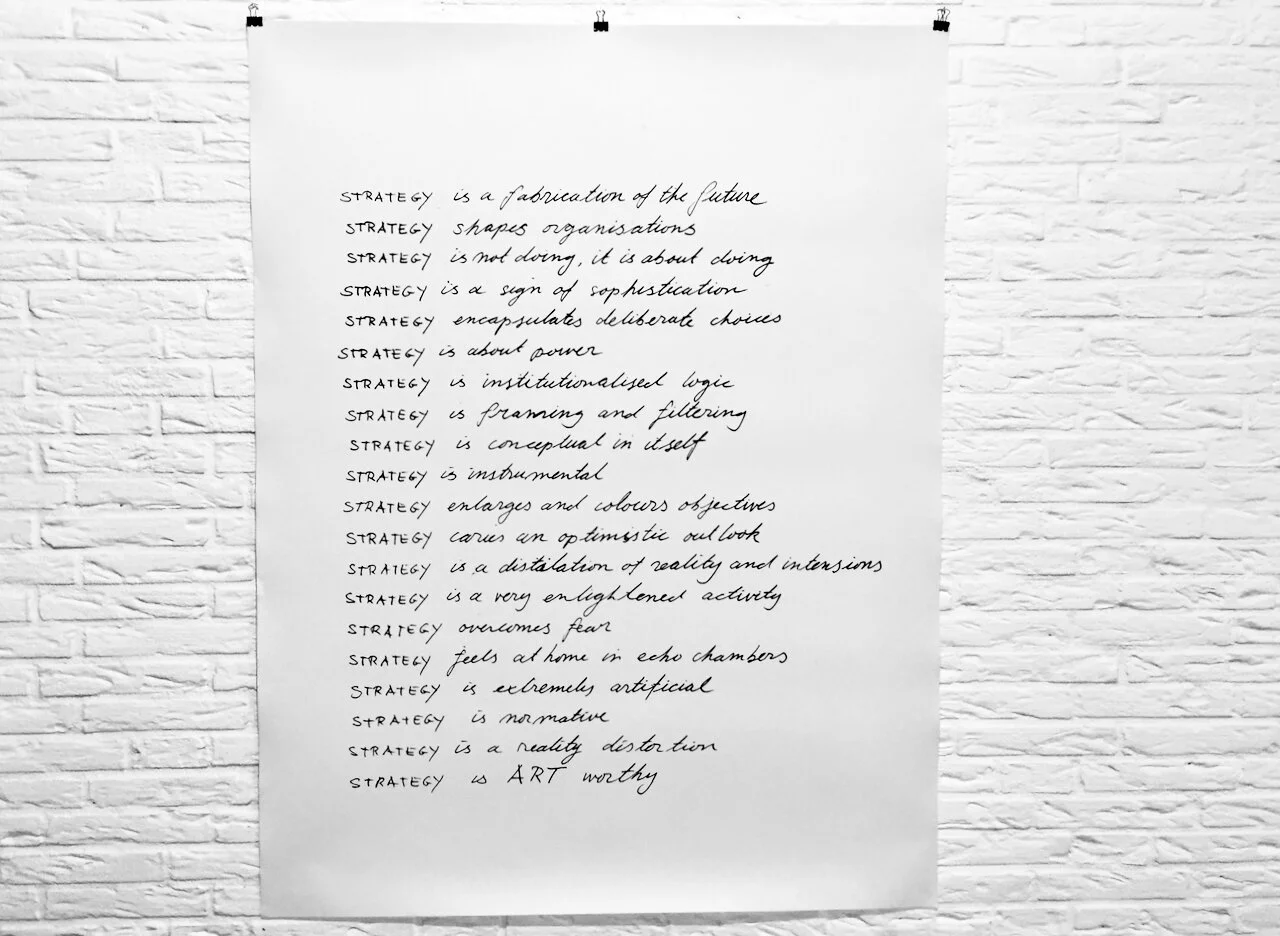 STRATEGY is a fabrication of the future
STRATEGY shapes organisations
STRATEGY is not doing, it is about doing
STRATEGY is a sign of sophistication
STRATEGY encapsulates deliberate choices
STRATEGY is about power
STRATEGY is institutionalised logic
STRATEGY is framing and filtering
STRATEGY is conceptual in itself
STRATEGY is instrumental
STRATEGY enlarges and colours objectives
STRATEGY caries an optimistic outlook
STRATEGY is a distilation of reality and intensions
STRATEGY is a very enlightened activity
STRATEGY overcomes fear
STRATEGY feels at home in echo chambers
STRATEGY is extremely artificial
STRATEGY is normative
STRATEGY is a reality distortion
STRATEGY is ART worthy